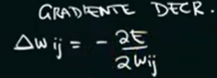 GRADIENTE DECR.
Δwij = - ∂E/∂wij